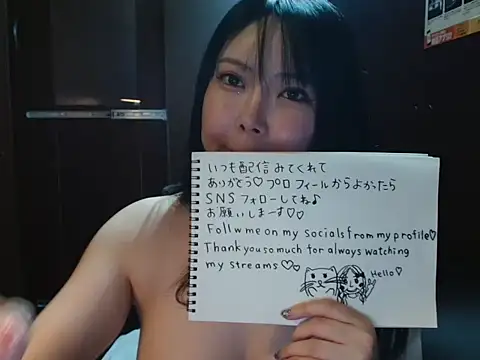 いつも配信みてくれて
ありがとう♡プロフィールからよかったら
SNSフォローしてね♪
お願いしまーす♡♡
Follwme on my socials from my profile♡
Thankyou so much for always watching
my streams♡♡
Hello♡